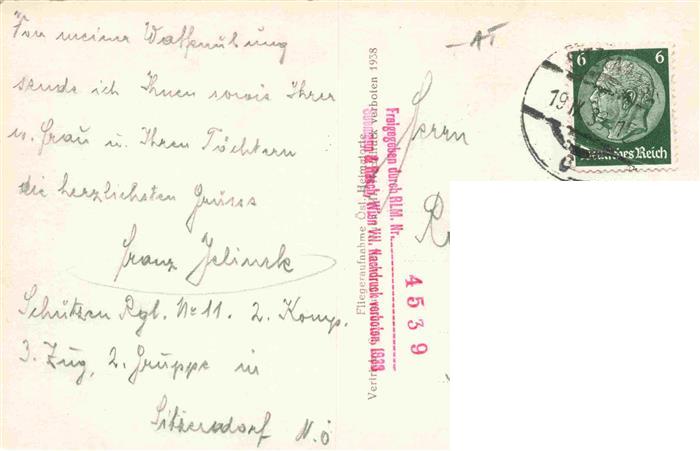 Von meiner Waffenübung
sende ich Ihnen sowie Ihrer
w. Frau u. Ihren Töchtern
die herzlichsten Grüsse
Franz Jelinek
Schützen Rgt. No 11. 2. Komp.
3. Zug, 2. Gruppe in
Sitzendorf N.Ö
Fliegeraufnahme Öst.
verboten 1938
Freigegeben durch RLM. Nr.
4539
& Rasch, Wien VII. Nachdruck verboten, 1939
Herrn
-AT
6 6
19.IV
Deutsches Reich